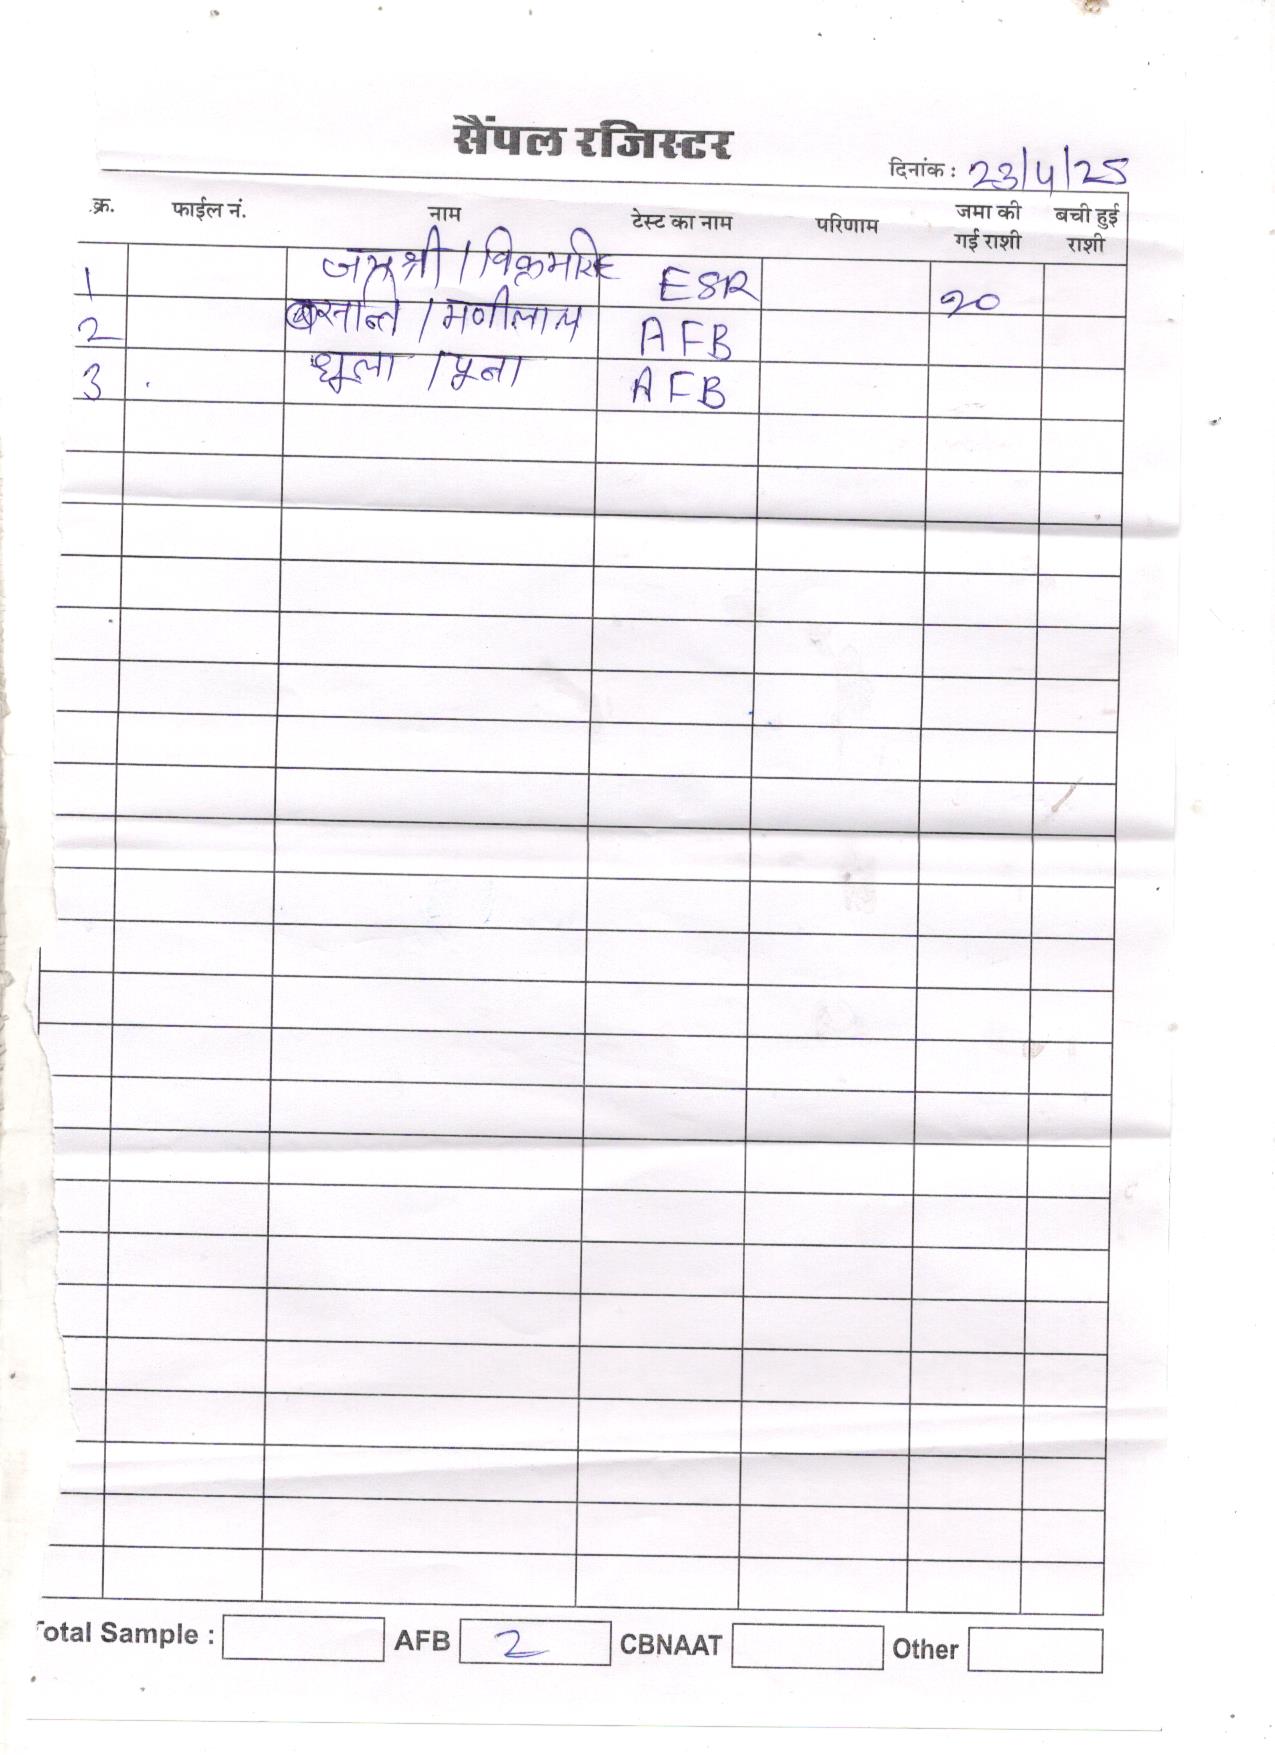 सैंपल रजिस्टर
दिनांक : 23/4/25
क्र. फाईल नं. नाम टेस्ट का नाम परिणाम जमा की गई राशी बची हुई राशी
1 जयश्री / ESR 20
2 बसन्ति / मणीलाल AFB
3 धूला / पूना AFB
Total Sample : AFB 2 CBNAAT Other